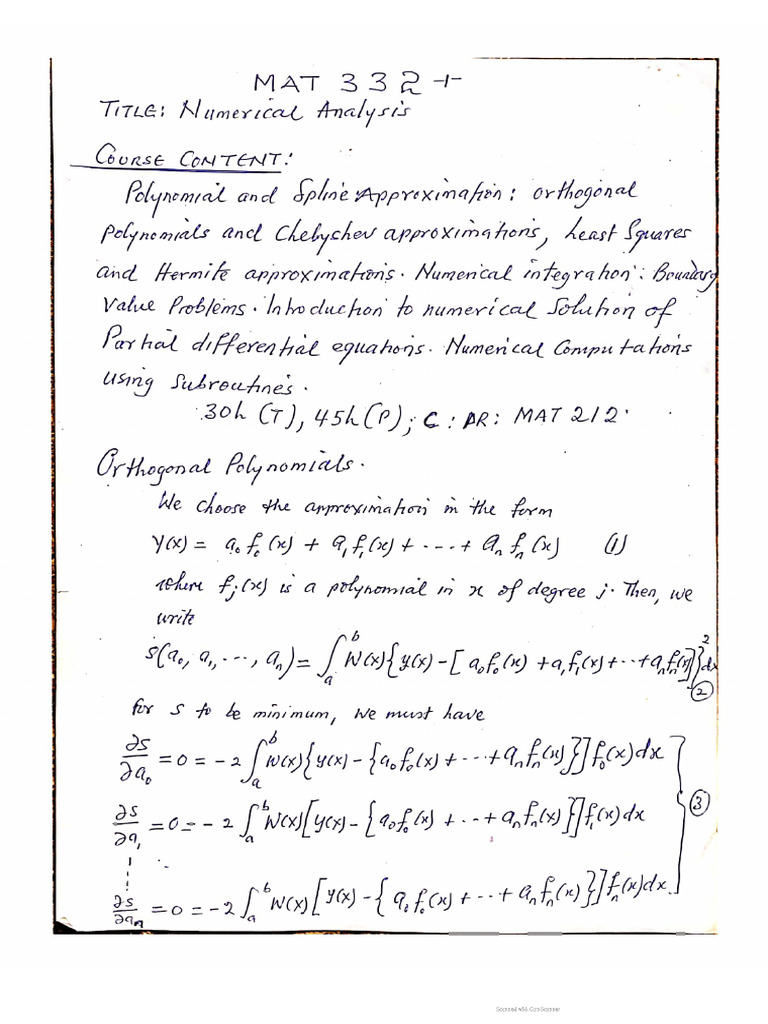 MAT 332+
TITLE: Numerical Analysis
COURSE CONTENT:
Polynomial and Spline Approximation: orthogonal
polynomials and Chebychev approximations, Least Squares
and Hermite approximations. Numerical integration: Boundary
Value Problems. Introduction to numerical Solution of
Partial differential equations. Numerical Computations
using Subroutines.
30h (T), 45h (P); C: PR: MAT 212.
Orthogonal Polynomials.
We choose the approximation in the form
Y(x) = a₀f₀(x) + a₁f₁(x) + ---- + aₙfₙ(x) (1)
where fⱼ(x) is a polynomial in x of degree j. Then, we
write
S(a₀, a₁, ..., aₙ) = ∫ₐᵇ W(x){y(x) - [a₀f₀(x) + a₁f₁(x) + ... + aₙfₙ(x)]}² dx (2)
for S to be minimum, we must have
∂S/∂a₀ = 0 = -2∫ₐᵇ W(x){y(x) - {a₀f₀(x) + ... + aₙfₙ(x)}]f₀(x)dx
∂S/∂a₁ = 0 = -2∫ₐᵇ W(x)[y(x) - {a₀f₀(x) + ... + aₙfₙ(x)}]f₁(x)dx (3)
∂S/∂aₙ = 0 = -2∫ₐᵇ W(x)[y(x) - {a₀f₀(x) + ... + aₙfₙ(x)}]fₙ(x)dx.
Scanned with CamScanner